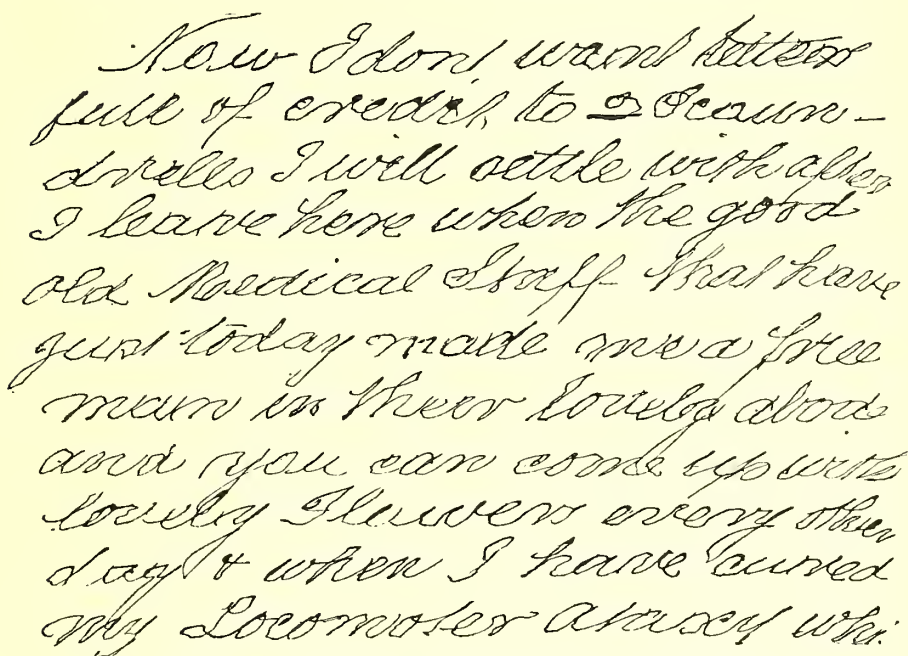 Now I dont want letters
full of credit, to 2 Scoun-
drells I will settle with after
I leave here when the good
old Medical Staff that have
just today made me a free
man in their lovely abode
and you can come up with
lovely Flowers every other
day & when I have cured
my Locomoter Ataxey whi